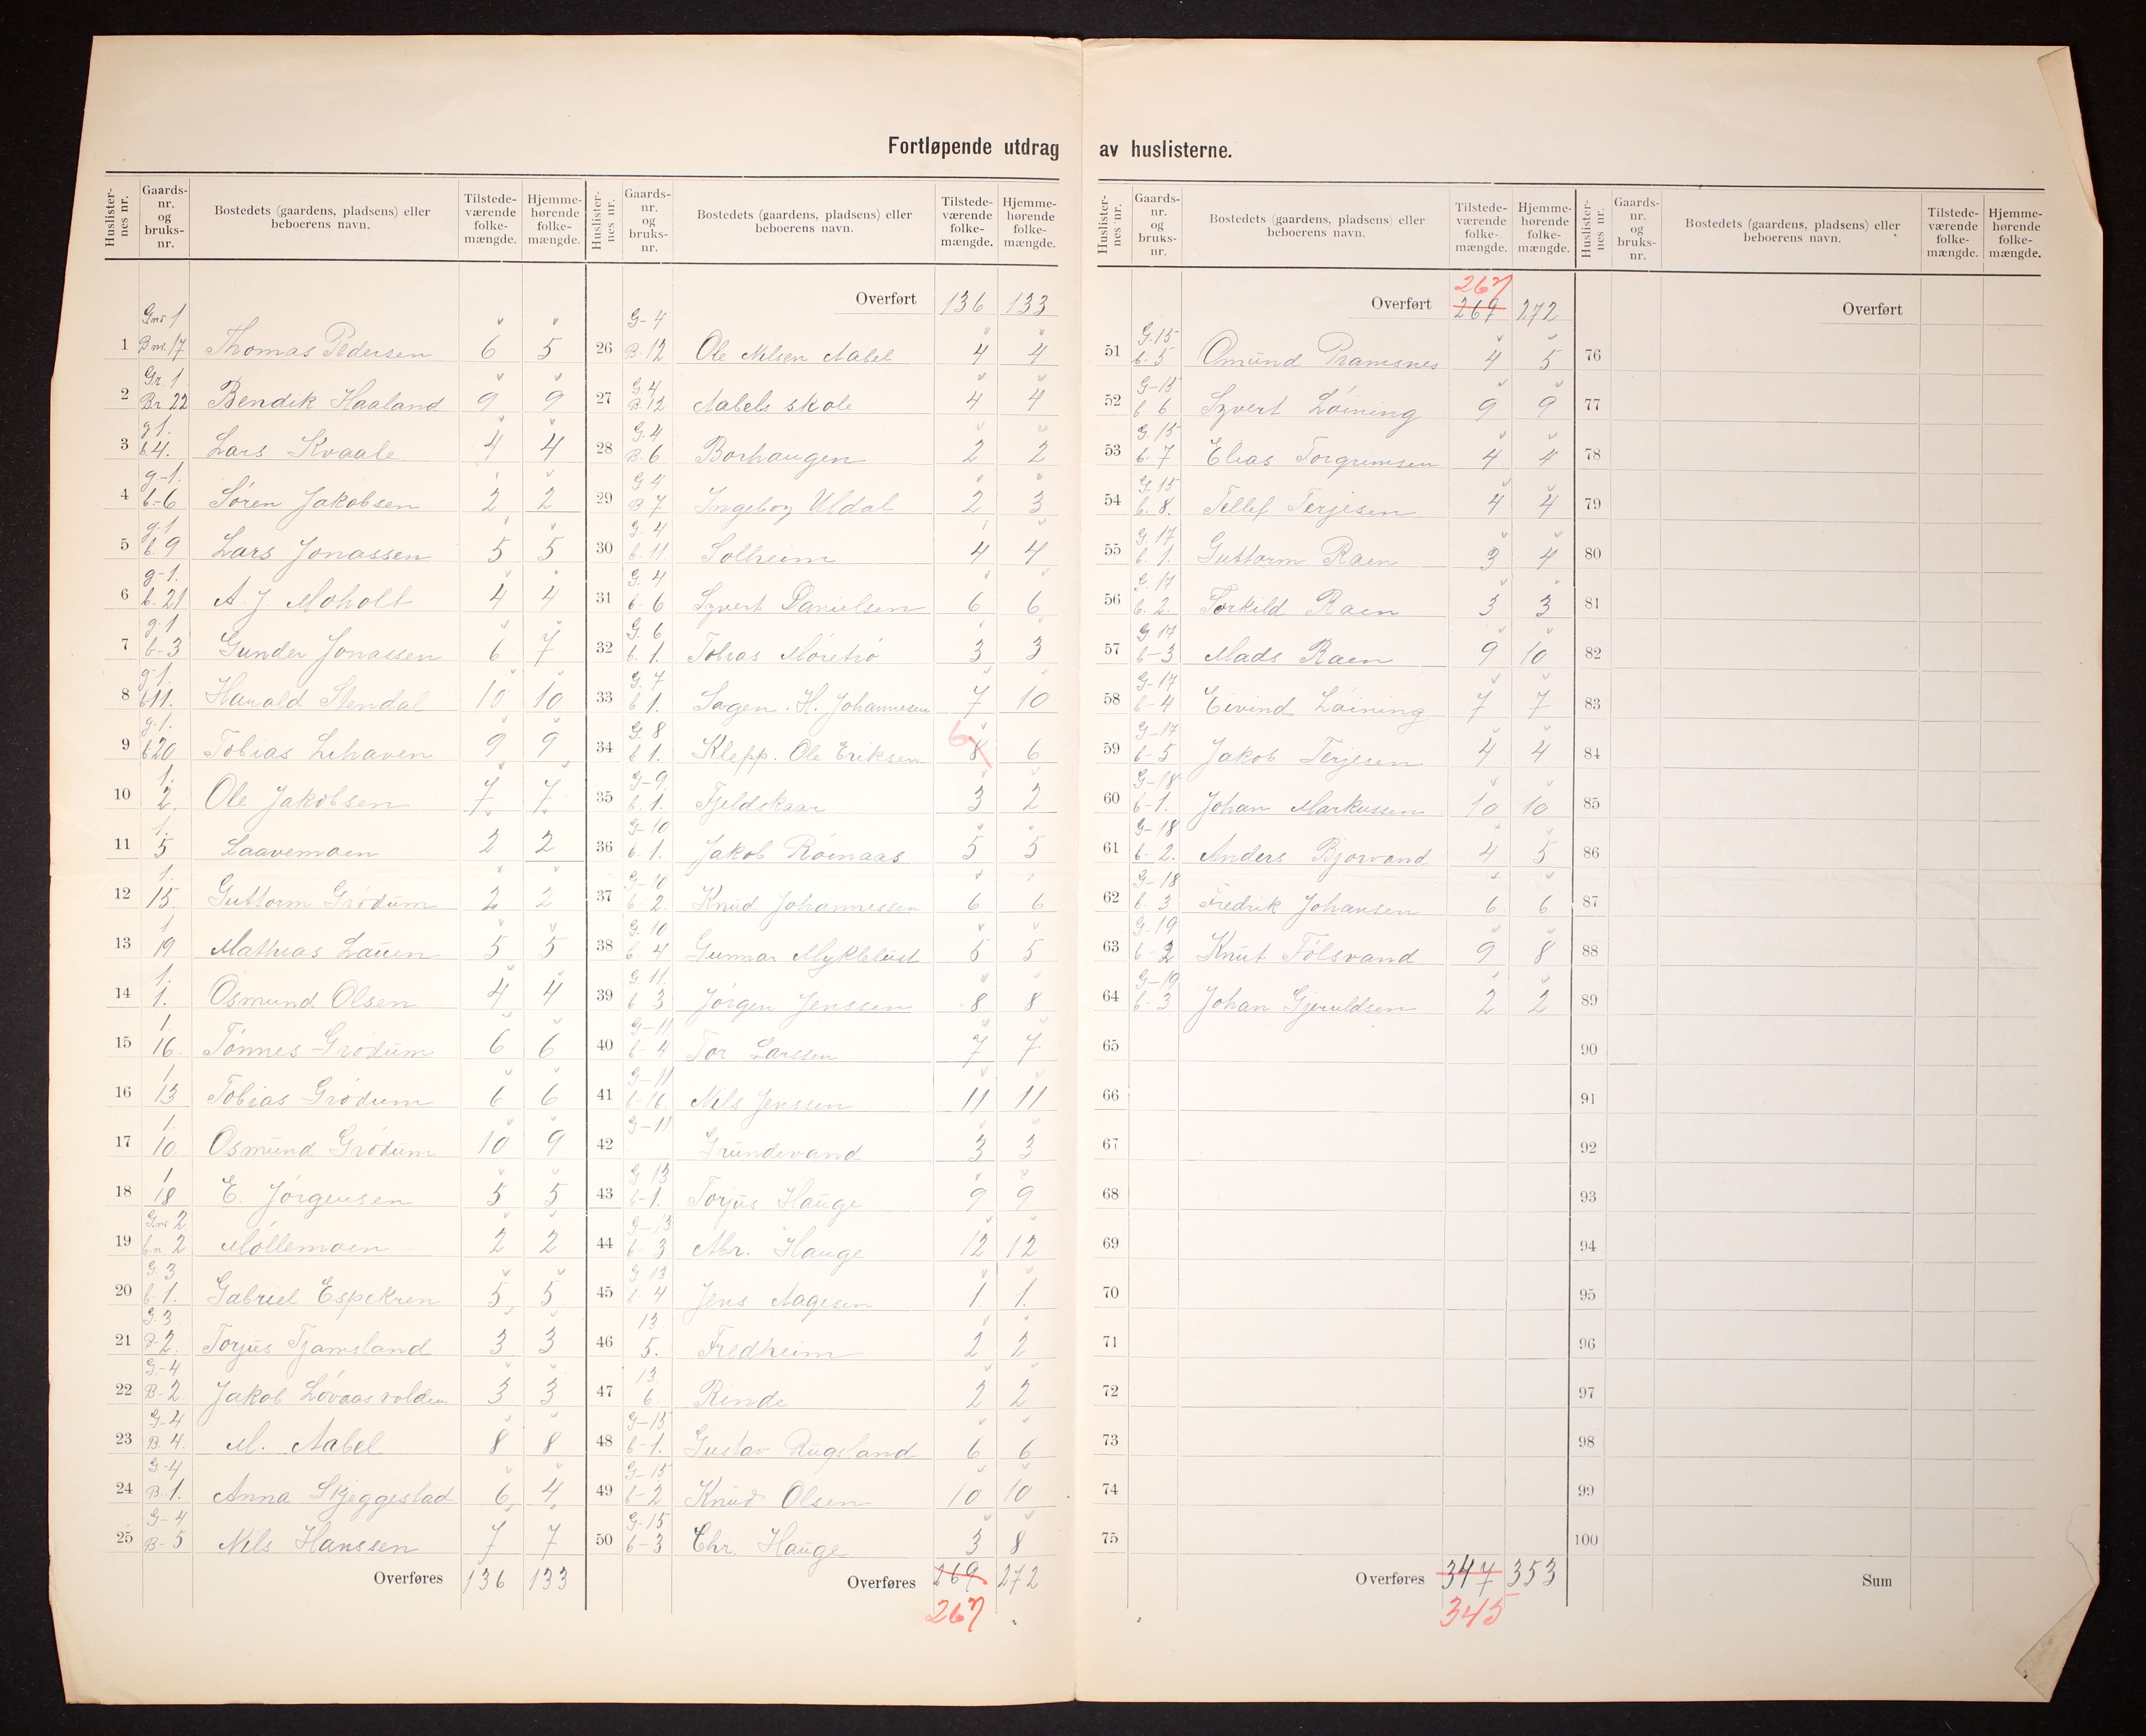 Fortløpende utdrag av huslisterne.
Huslister-nes nr. Gaards-nr. og bruks-nr. Bostedets (gaardens, pladsens) eller beboerens navn. Tilstede-værende folke-mængde. Hjemme-hørende folke-mængde.
1 Gnr 1 Bnr. 17 Thomas Pedersen 6 5
2 Gr. 1 Br 22 Bendik Haaland 9 9
3 g 1. b 4. Lars Kvaale 4 4
4 g.-1. b-6 Søren Jakobsen 2 2
5 g-1 b. 9 Lars Jonassen 5 5
6 g-1. b. 21 A. J. Moholt 4 4
7 g-1 b-3 Gunder Jonassen 6 7
8 g-1. b 11. Harald Stendal 10 10
9 g.-1. b 20 Tobias Lihaven 9 9
10 1. 2. Ole Jakobsen 7. 7.
11 1. 5 Laavemoen 2 2
12 1. 15. Guttorm Grødum 2 2
13 1 19 Mathias Lauen 5 5
14 1. 1. Osmund Olsen 4 4
15 1. 16. Tønnes Grødum 6 6
16 1. 13 Tobias Grødum 6 6
17 1. 10 Osmund Grødum 10 9
18 1 18 E. Jørgensen 5 5
19 Gnr 2 b.n 2 Møllemoen 2 2
20 G. 3 b-1. Gabriel Espekren 5 5
21 G. 3 B-2. Torjus Tjamsland 3 3
22 G-4 B-2 Jakob Løvaasvolden 3 3
23 G-4 B. 4. M. Aabel 8 8
24 G-4 B-1. Anna Skjeggestad 6 4
25 G-4 B-5 Nils Hanssen 7 7
Overføres 136 133
Huslister-nes nr. Gaards-nr. og bruks-nr. Bostedets (gaardens, pladsens) eller beboerens navn. Tilstede-værende folke-mængde. Hjemme-hørende folke-mængde.
Overført 136 133
26 G-4 B. 12 Ole Nilsen Aabel 4 4
27 G 4 B. 12 Aabels skole 4 4
28 G. 4 B. 6 Borhaugen 2 2
29 G 4 B 7 Ingeborg Uldal 2 3
30 G. 4 b-11. Solheim 4 4
31 G. 4 b-6 Syvert Danielsen 6 6
32 G. 6 b. 1. Tobias Møretrø 3 3
33 G. 7 b 1. Sagen. H. Johannesen 7 10
34 G. 8 b 1. Klepp. Ole Eriksen 8 6 6
35 G-9. b. 1. Fjeldskaar 3 2
36 G-10 b. 1. Jakob Røinaas 5 5
37 G-10 b-2. Knud Johannessen 6 6
38 G. 10 b-4 Gunnar Myklebust 5 5
39 G. 11. b 3 Jørgen Jenssen 8 8
40 G-11 b-4 Tor Larssen 7 7
41 G-11 b-16. Nils Jenssen 11 11
42 G-11 Grundevand 3 3
43 G. 13 b-1. Torjus Hauge 9 9
44 G-13 b-3 Abr. Hauge 12 12
45 G 13 b 4 Jens Aagesen 1. 1.
46 13 5. Fredheim 2 2
47 13. 6. Rinde 2 2
48 G-15 b-1. Gustav Rugsland 6 6
49 G-15 b-2 Knud Olsen 10 10
50 G-15 b-3 Chr. Hauge 3 8
Overføres 269 272
267
Huslister-nes nr. Gaards-nr. og bruks-nr. Bostedets (gaardens, pladsens) eller beboerens navn. Tilstede-værende folke-mængde. Hjemme-hørende folke-mængde.
267
Overført 269 272
51 G. 15 b-5 Omund Pramsnes 4 5
52 G-15 b 6 Syvert Løining 9 9
53 G. 15 b. 7 Elias Torgrimsen 4 4
54 G. 15 b. 8. Tellef Terjesen 4 4
55 G. 17 b. 1. Guttorm Raen 3 4
56 G. 17 b. 2. Torkild Raen 3 3
57 G 17 b-3 Mads Raen 9 10
58 G-17 b-4 Eivind Løining 7 7
59 G-17 b-5 Jakob Terjesen 4 4
60 G-18 b-1. Johan Markussen 10 10
61 G-18 b-2. Anders Bjorvand 4 5
62 G-18 b. 3 Fredrik Johansen 6 6
63 G. 19 b-2 Knut Følsvand 9 8
64 G-19 b-3 Johan Gjeruldsen 2 2
65
66
67
68
69
70
71
72
73
74
75
Overføres 347 353
345
Huslister-nes nr. Gaards-nr. og bruks-nr. Bostedets (gaardens, pladsens) eller beboerens navn. Tilstede-værende folke-mængde. Hjemme-hørende folke-mængde.
Overført
76
77
78
79
80
81
82
83
84
85
86
87
88
89
90
91
92
93
94
95
96
97
98
99
100
Sum